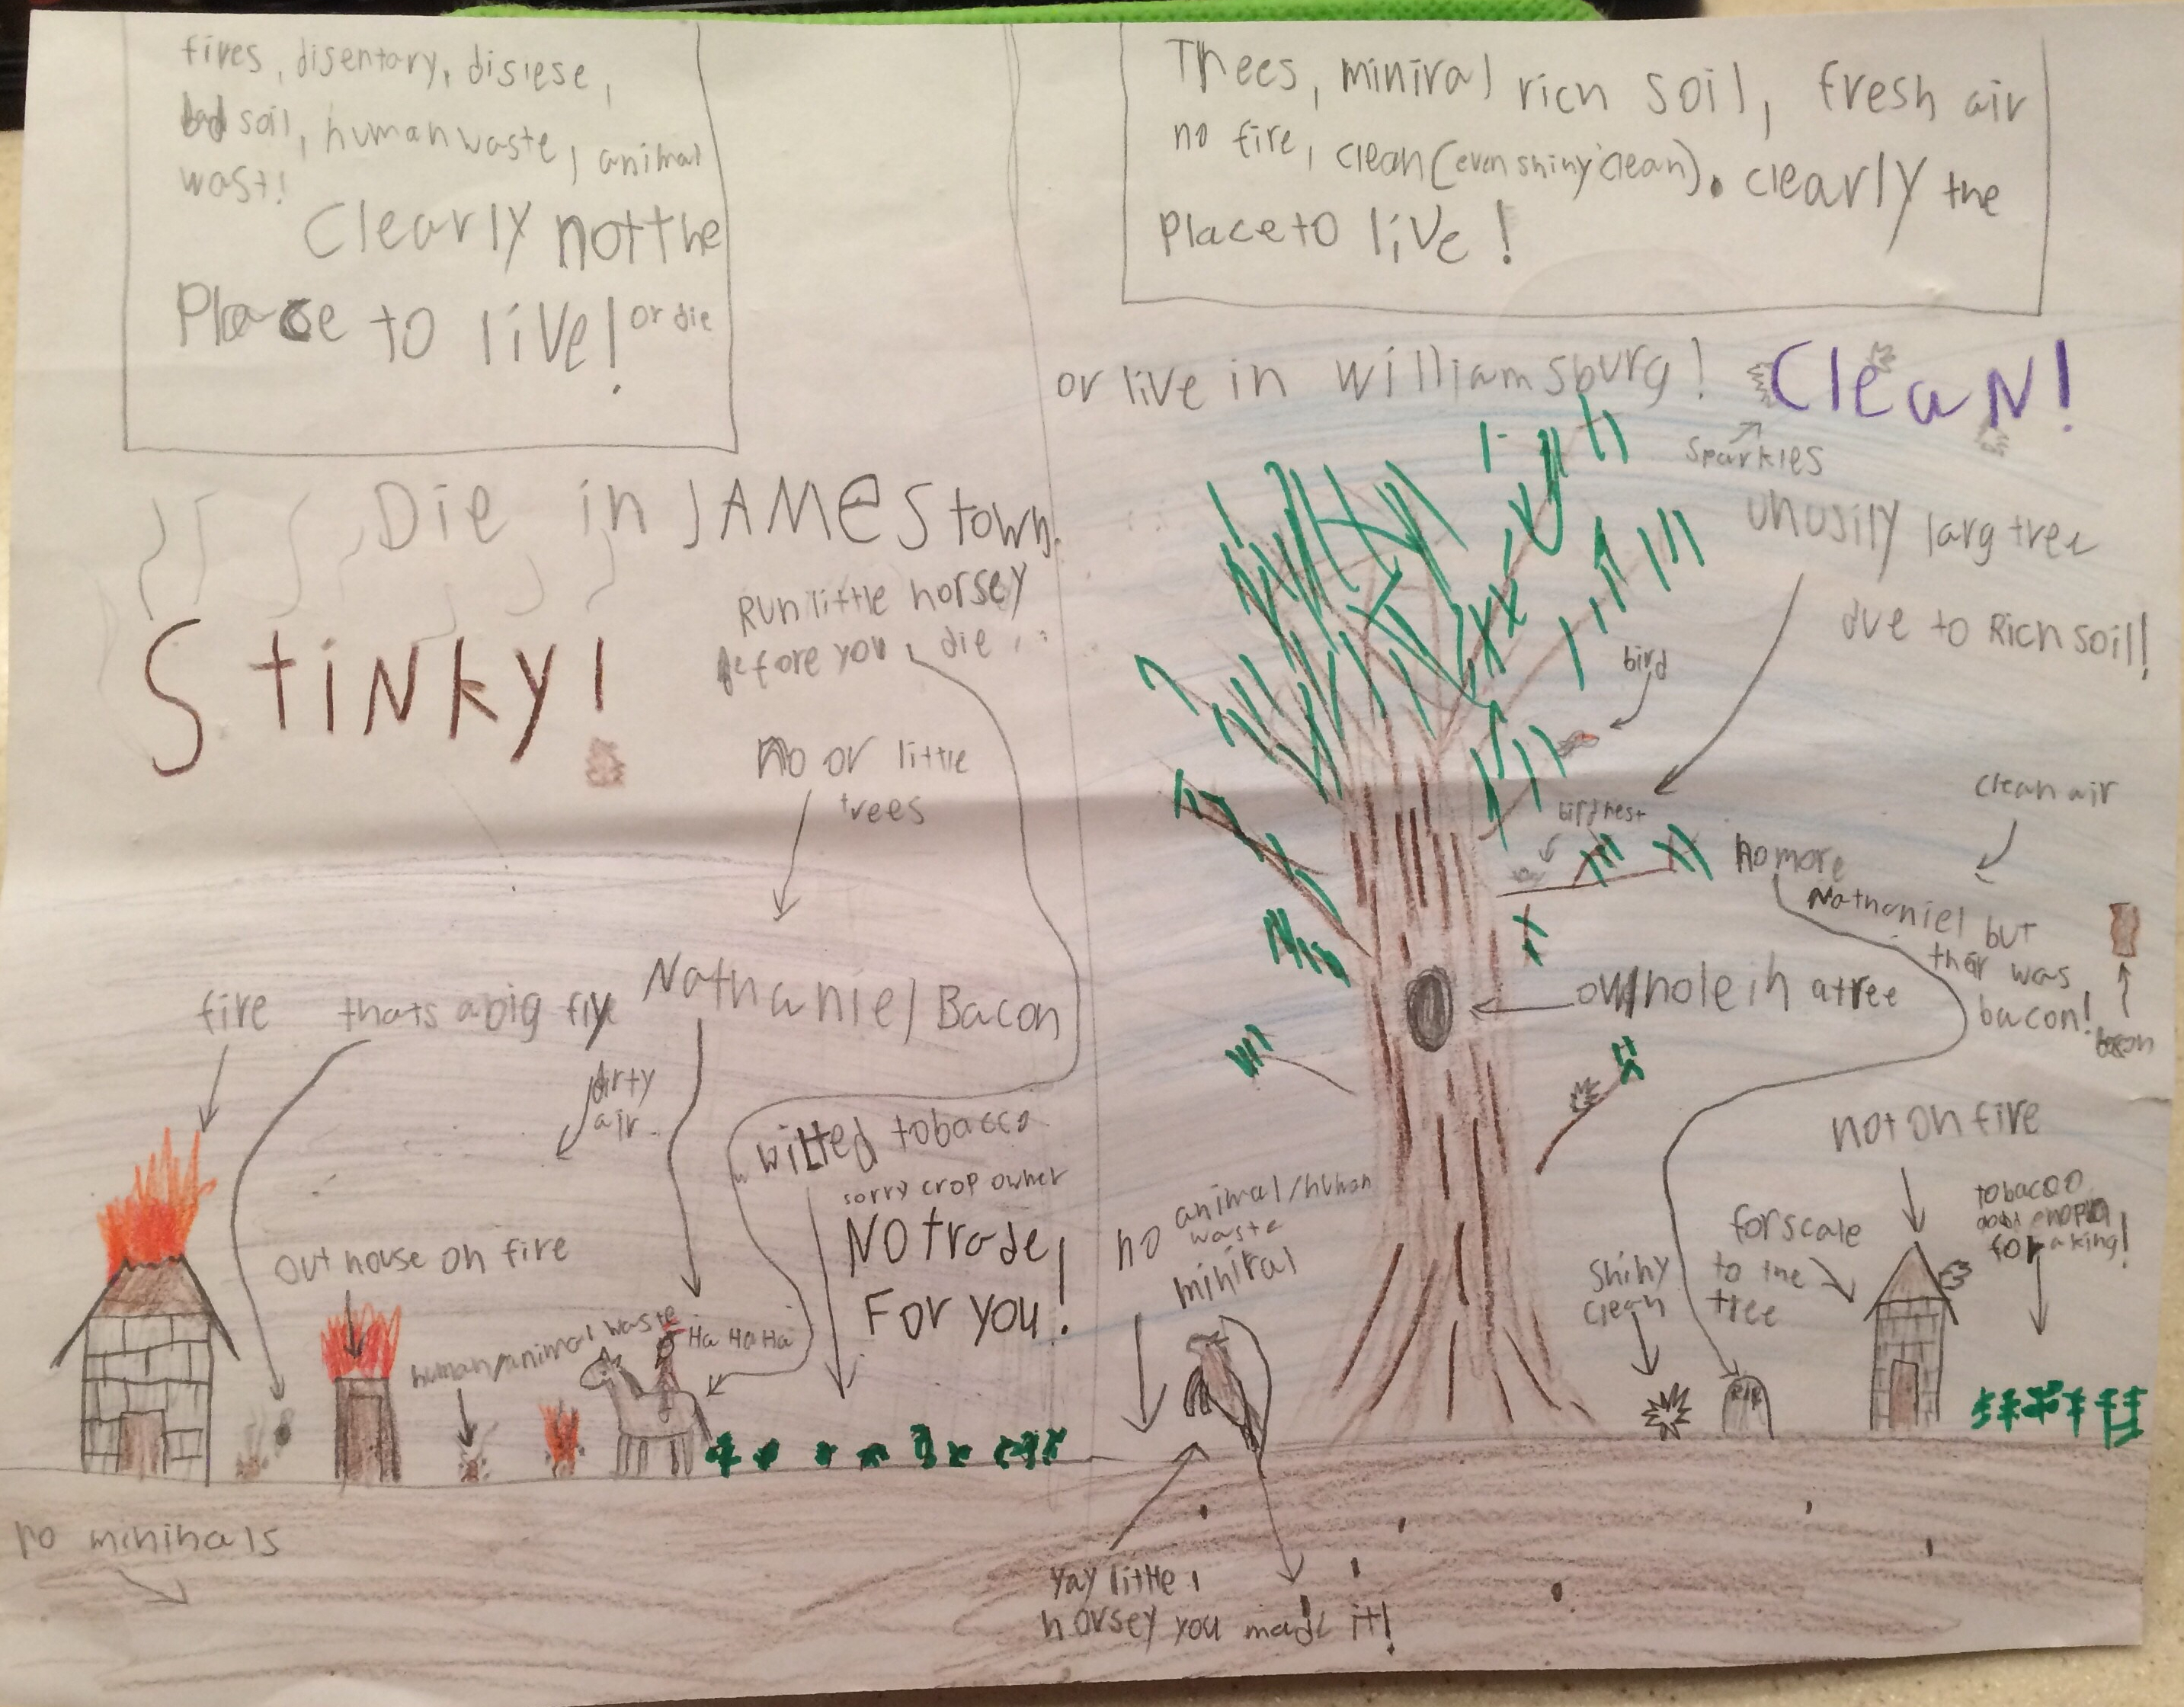 fires, disentary, disiese,
bad soil, human waste, animal
wast!
Clearly not the
Place to live! or die
Die in JAMEStown.
Stinky!
Run little horsey
before you die
no or little
trees
fire
thats a big fly
Nathaniel Bacon
dirty
air
wilted tobacco
sorry crop owner
NO trade
For you!
out house on fire
human/animal waste
Ha Ha Ha
no minirals
Trees, miniral rich soil, fresh air
no fire, clean (even shiny clean). clearly the
Place to live!
or live in williamsburg!
CleaN!
Sparkles
unusily larg tree
due to Rich soil!
bird
bird nest
clean air
no more
Nathaniel but
ther was
bacon!
bacon
hole in a tree
not on fire
for scale
to the
tree
tobacco
for a king!
shiny
clean
RIP
no animal/human
waste
miniral
yay little
horsey you made it!